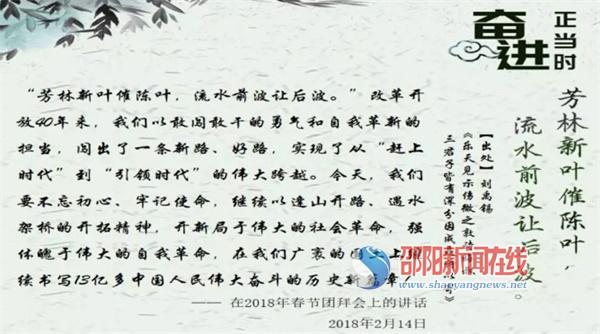 奋进
正当时
芳林新叶催陈叶，
流水前波让后波。
【出处】刘禹锡
《乐天见示伤微之敦诗
三君子皆有深分因成是诗以寄》
“芳林新叶催陈叶，流水前波让后波。”改革开
放40年来，我们以敢闯敢干的勇气和自我革新的
担当，闯出了一条新路、好路，实现了从“赶上
时代”到“引领时代”的伟大跨越。今天，我们
要不忘初心、牢记使命，继续以逢山开路、遇水
架桥的开拓精神，开新局于伟大的社会革命，强
体魄于伟大的自我革命，在我们广袤的国土上继
续书写13亿多中国人民伟大奋斗的历史新篇章！
—— 在2018年春节团拜会上的讲话
2018年2月14日
邵阳新闻在线
www.shaoyangnews.net